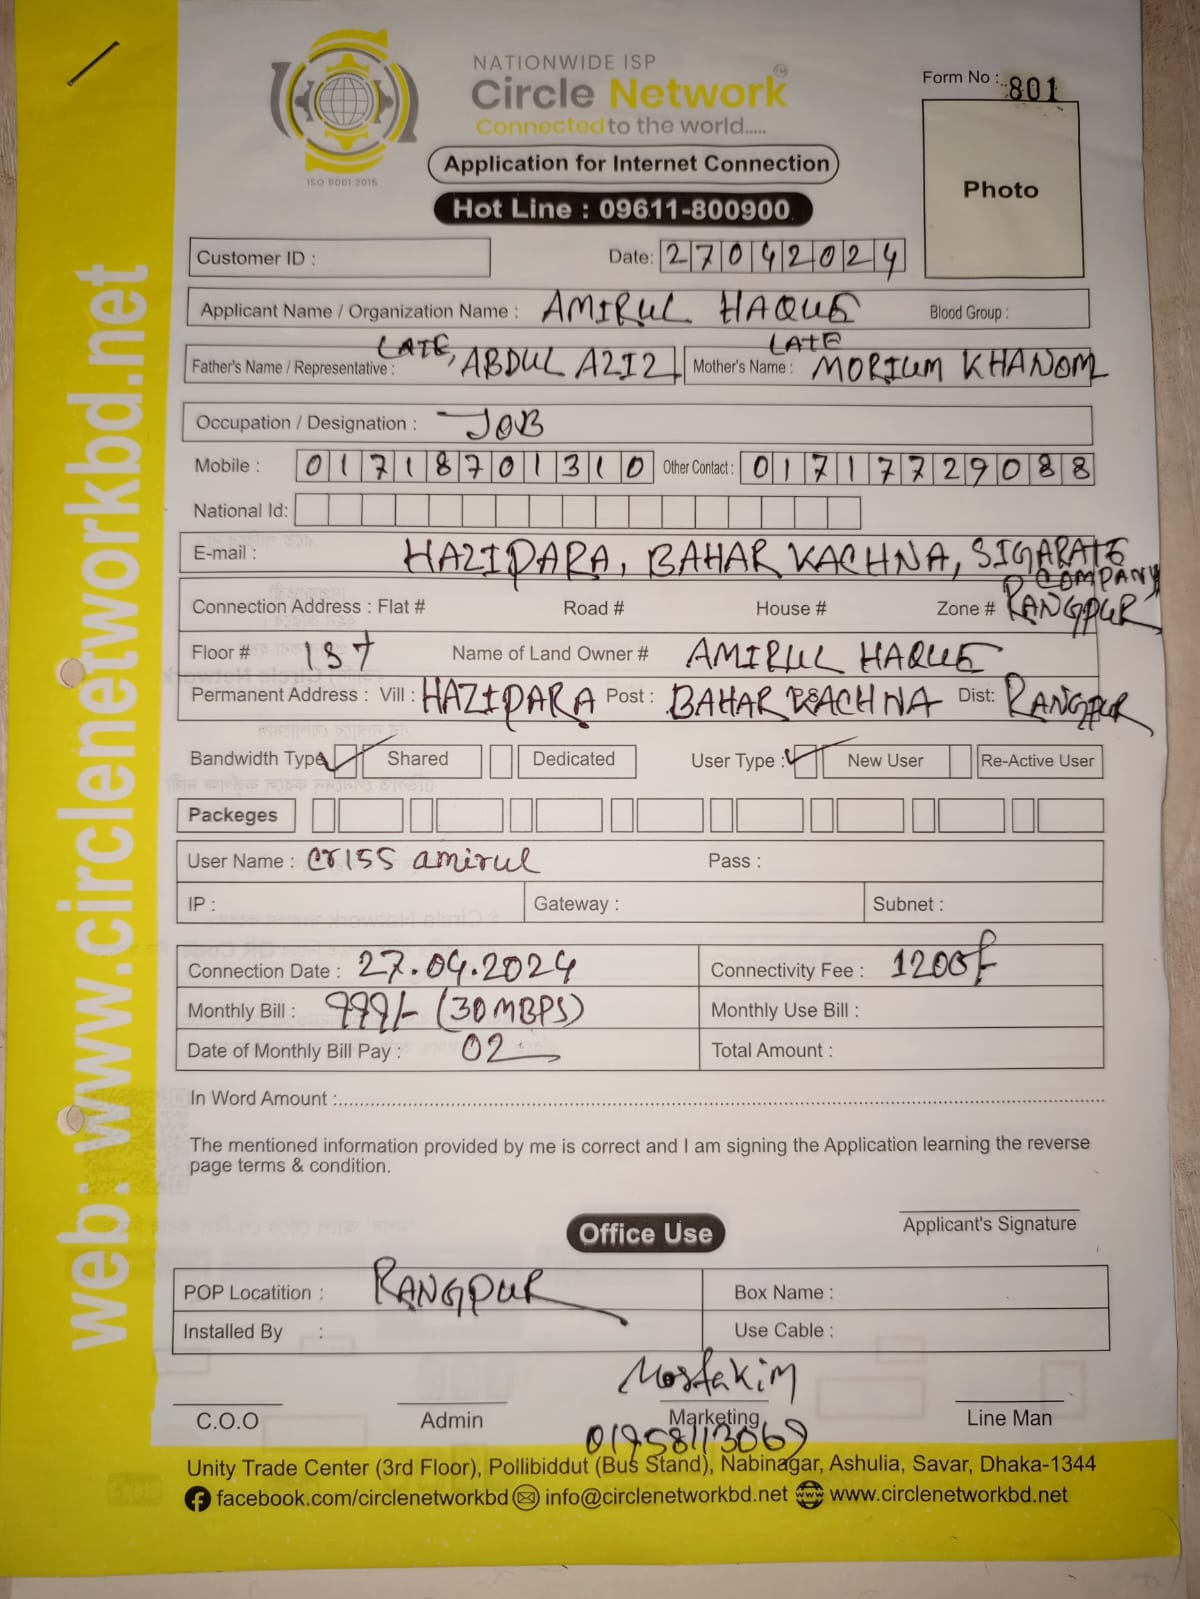 NATIONWIDE ISP
Circle Network
Connected to the world.....
ISO 9001:2015
Form No : 801
Application for Internet Connection
Photo
Hot Line : 09611-800900
Customer ID :
Date: 27042024
Applicant Name / Organization Name : AMIRUL HAQUE Blood Group :
Father's Name / Representative : LATE, ABDUL AZIZ Mother's Name : LATE MORIUM KHANOM
Occupation / Designation : JOB
Mobile : 01718701310 Other Contact : 01717729088
National Id:
E-mail : HAZIPARA, BAHAR KACHNA, SIGARATE COMPANY
Connection Address : Flat # Road # House # Zone # RANGPUR
Floor # 1st Name of Land Owner # AMIRUL HAQUE
Permanent Address : Vill : HAZIPARA Post : BAHAR KACHNA Dist: RANGPUR
Bandwidth Type Shared Dedicated User Type : New User Re-Active User
Packeges
User Name : criss amirul Pass :
IP : Gateway : Subnet :
Connection Date : 27.04.2024 Connectivity Fee : 1200/-
Monthly Bill : 999/- (30 MBPS) Monthly Use Bill :
Date of Monthly Bill Pay : 02 Total Amount :
In Word Amount :
The mentioned information provided by me is correct and I am signing the Application learning the reverse
page terms & condition.
Applicant's Signature
Office Use
POP Locatition : RANGPUR Box Name :
Installed By : Use Cable :
Mostakim
C.O.O Admin Marketing Line Man
01958113069
Unity Trade Center (3rd Floor), Pollibiddut (Bus Stand), Nabinagar, Ashulia, Savar, Dhaka-1344
facebook.com/circlenetworkbd info@circlenetworkbd.net www.circlenetworkbd.net
web: www.circlenetworkbd.net